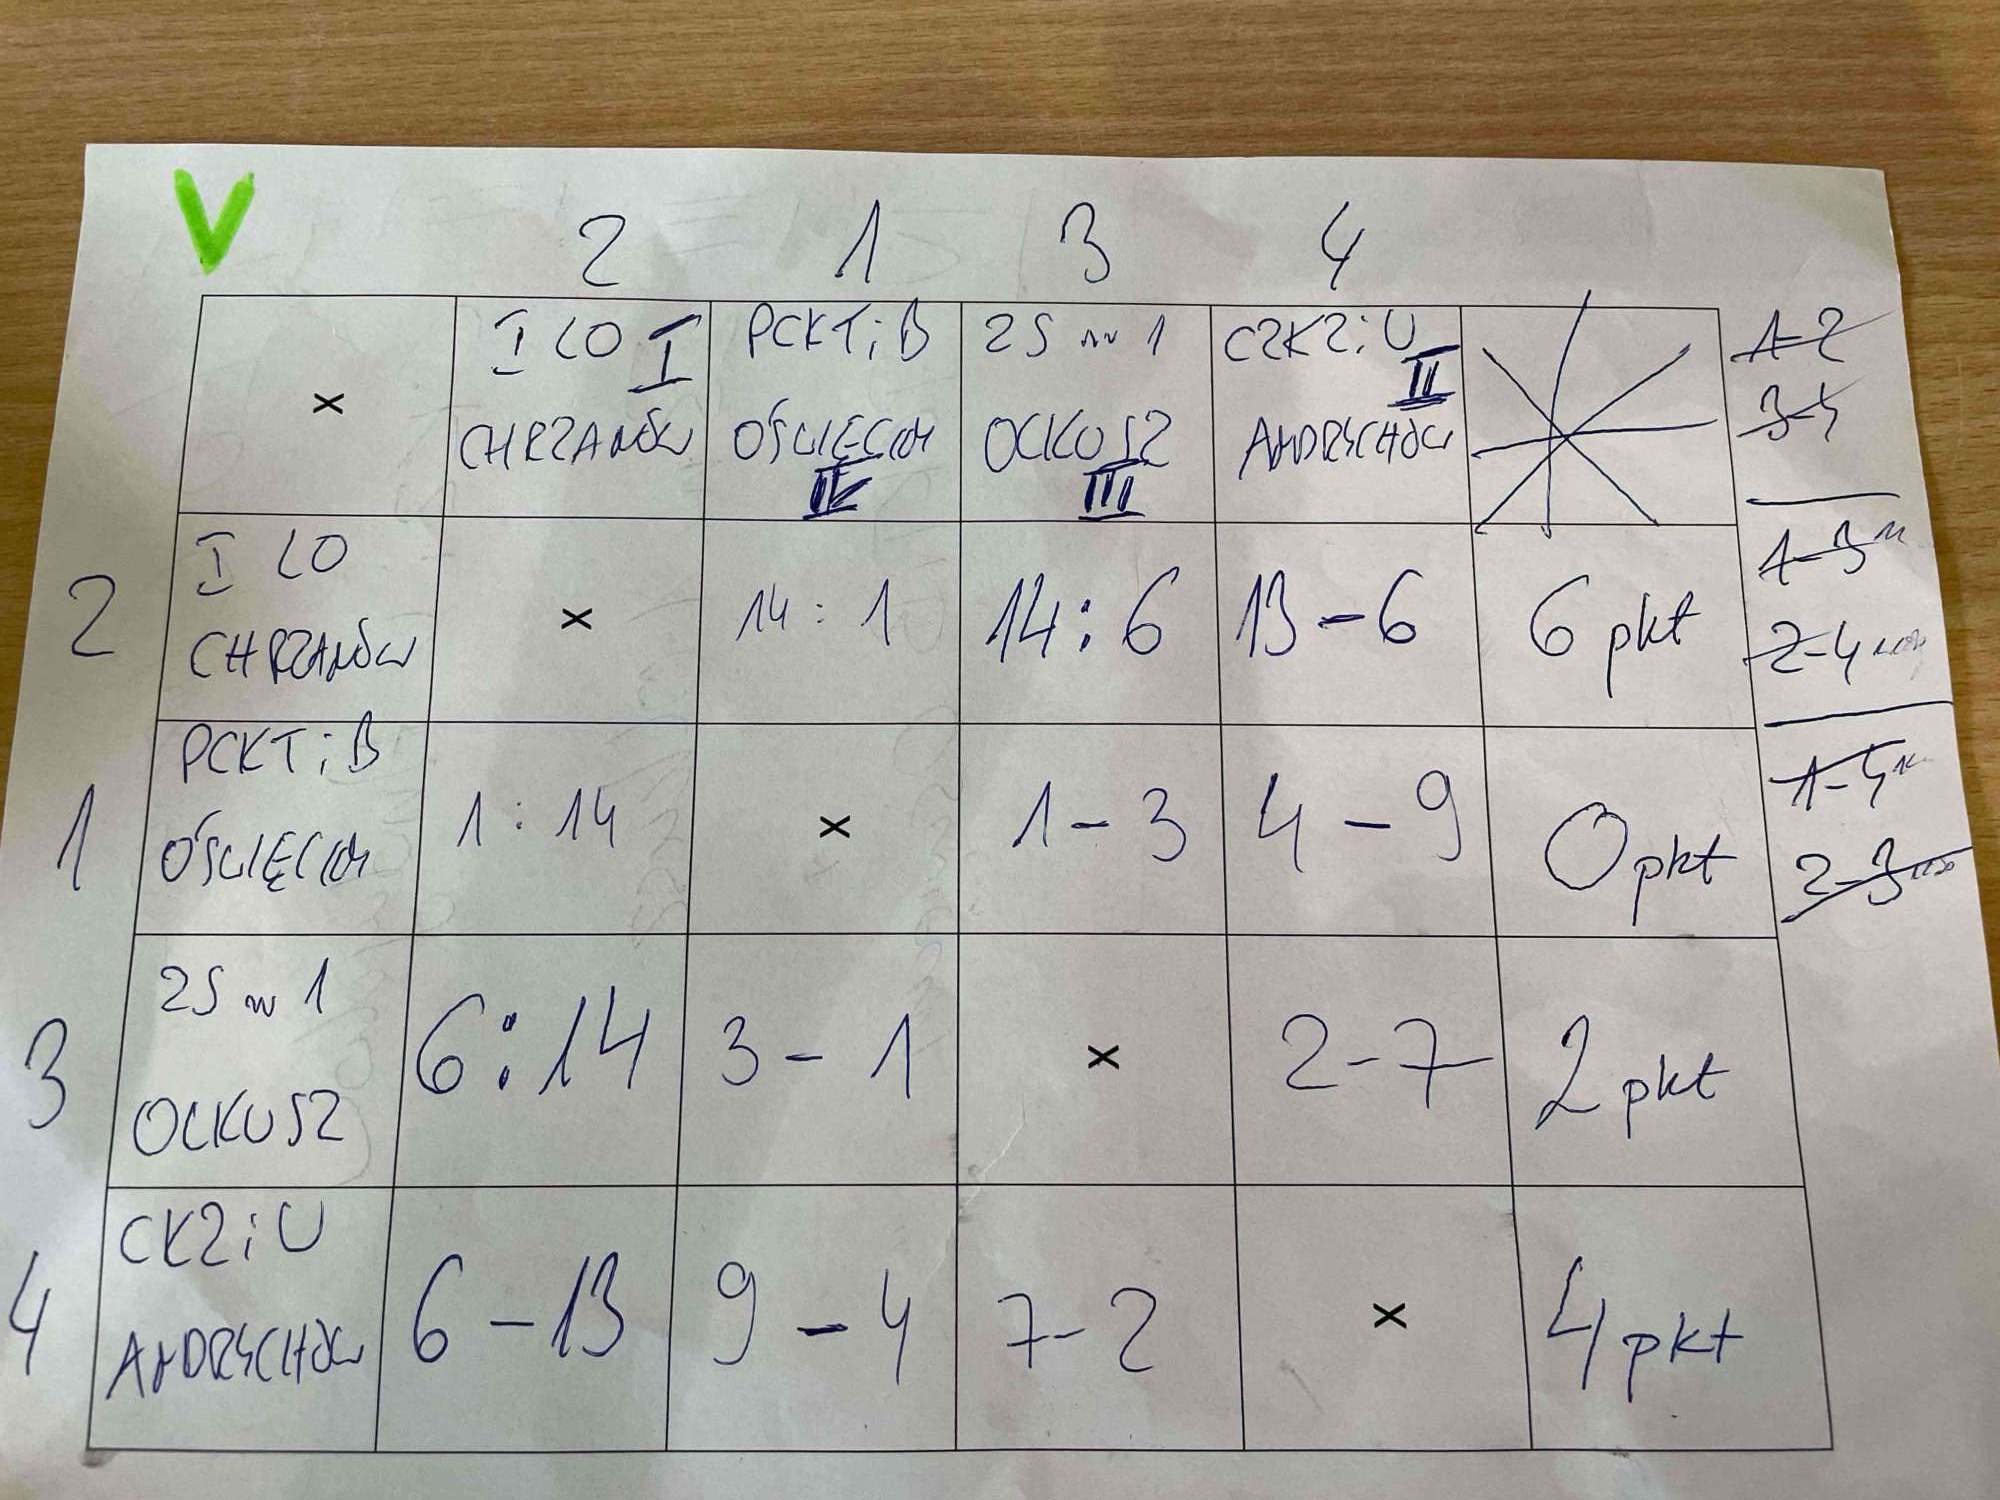 V
2 1 3 4
x
I LO I
CHRZANÓW
PCKTiB
OŚWIĘCIM
IV
ZS nr 1
OLKUSZ
III
CZKZiU
II
ANDRYCHÓW
1-2
3-4
1-3
2-4
1-4
2-3
2
I LO
CHRZANÓW
x
14 : 1
14 : 6
13 - 6
6 pkt
1
PCKTiB
OŚWIĘCIM
1 : 14
x
1 - 3
4 - 9
0 pkt
3
ZS nr 1
OLKUSZ
6 : 14
3 - 1
x
2 - 7
2 pkt
4
CKZiU
ANDRYCHÓW
6 - 13
9 - 4
7 - 2
x
4 pkt